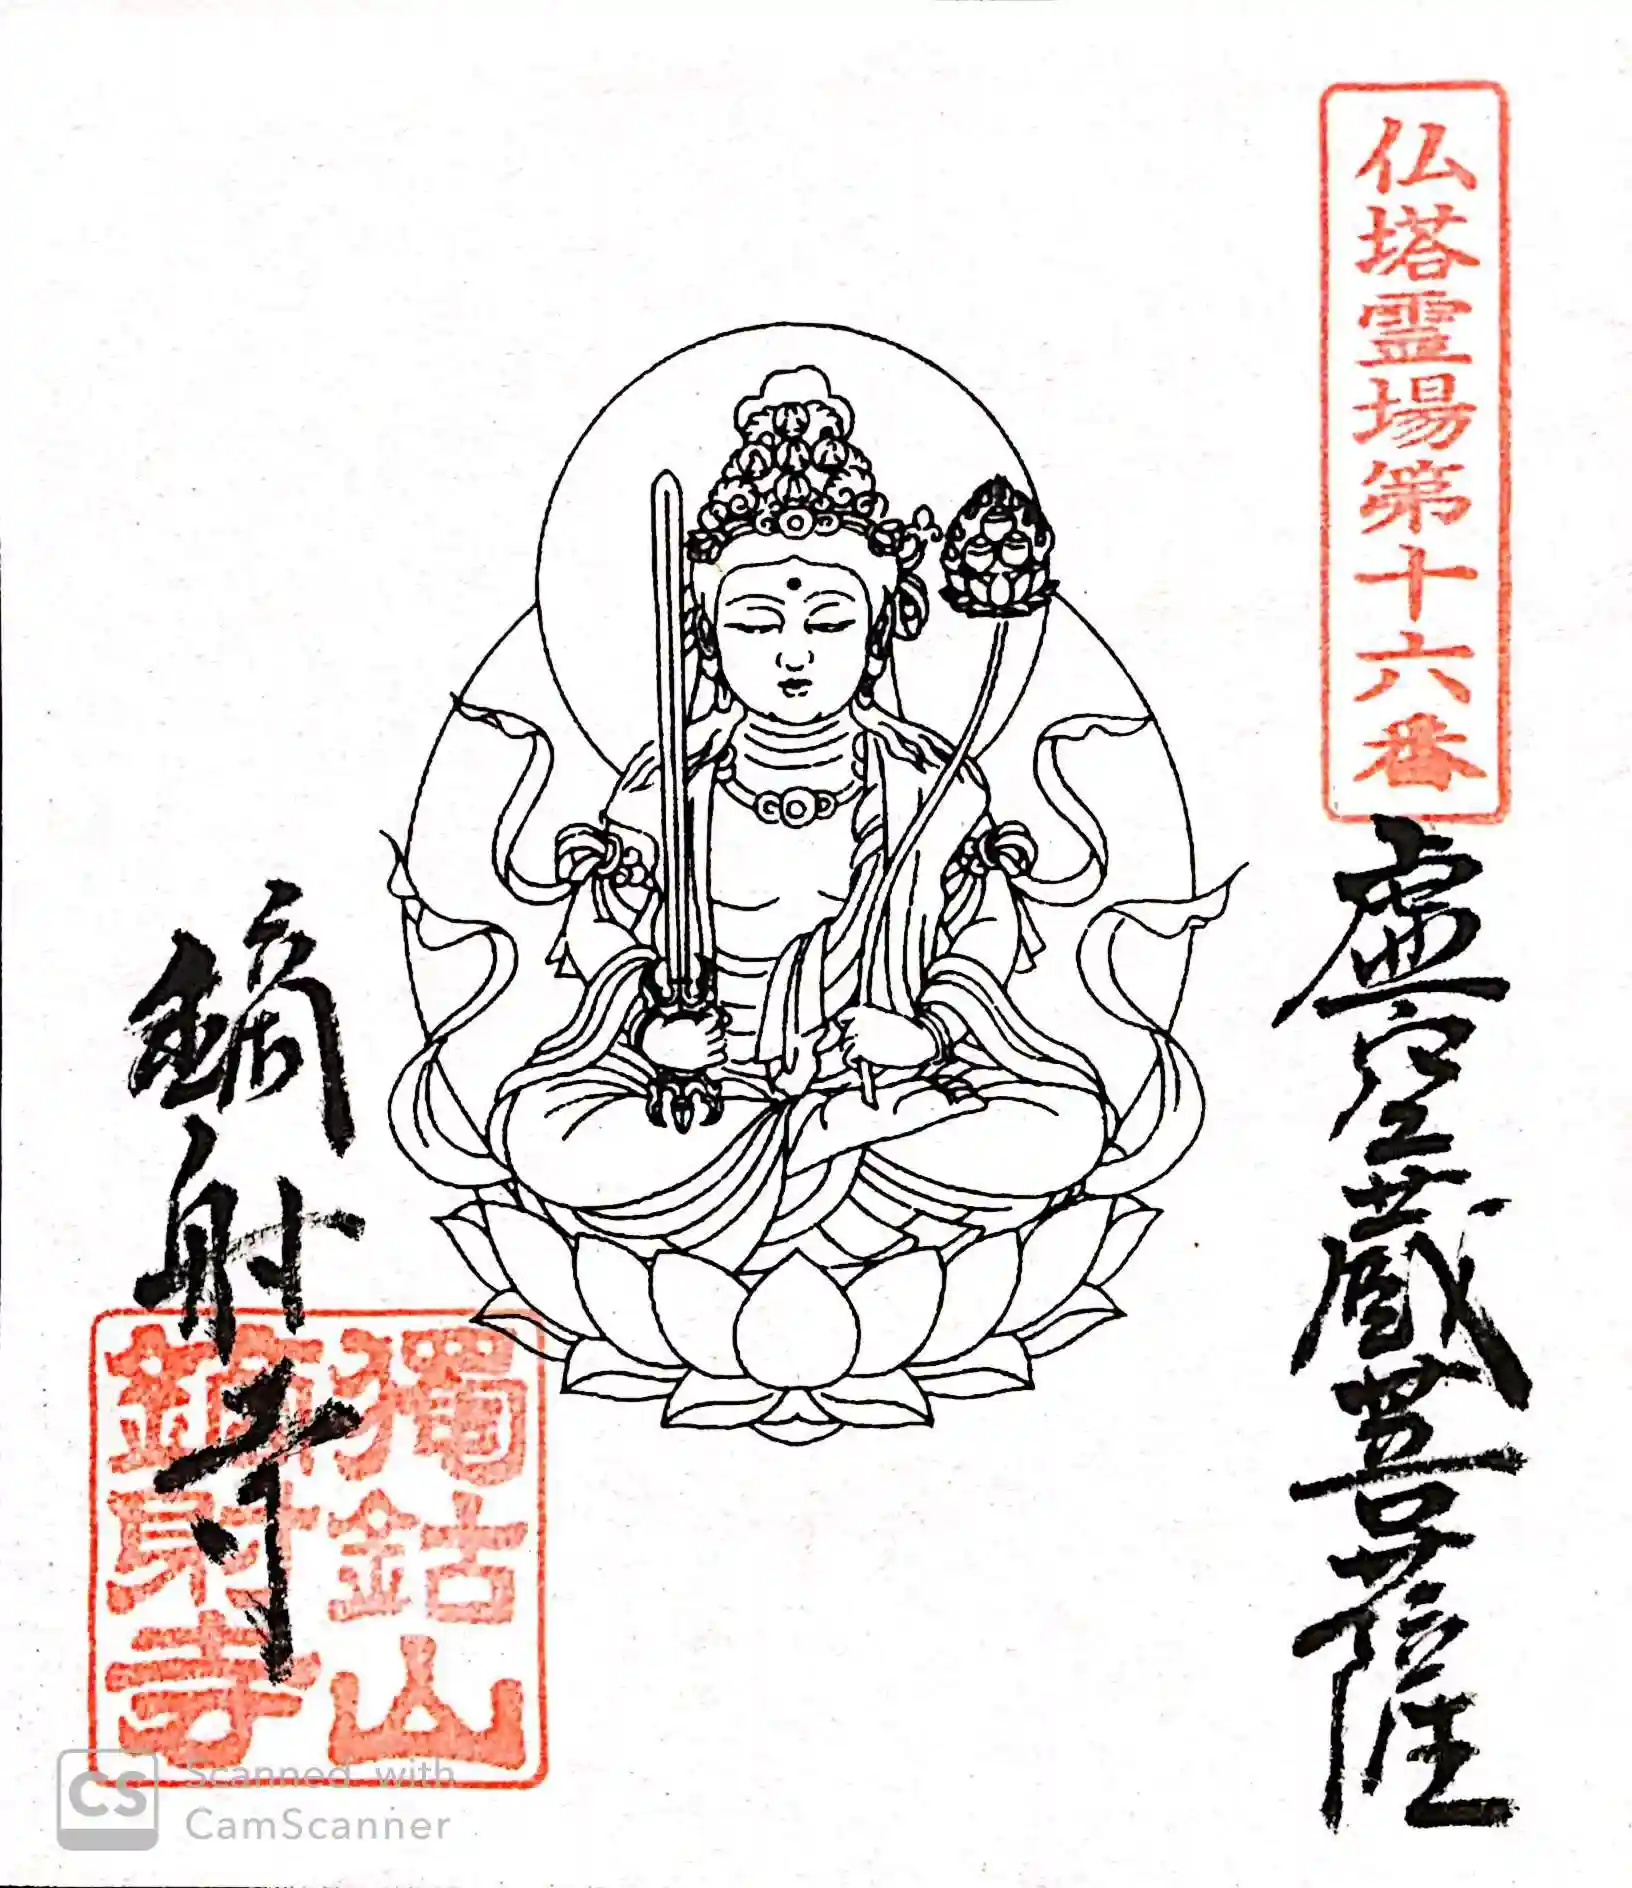 仏塔霊場第十六番
虚空蔵菩薩
鏑射寺
獨鈷山
鏑射寺
CS Scanned with
CamScanner